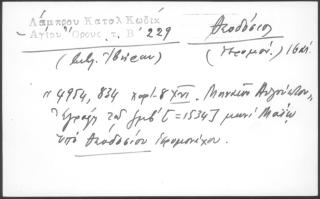 Λάμπρου Κατολ Κωδίκ
Αγίου Όρους τ. Β' 229
Θεοδόσιος
(βιβ. Ἰβήρων)
(Ἱερομόν.) 16 αἰ
" 4954, 834 χαρτ. 8 XVI. Μηναῖον Αὐγούστου,
Ἐγράφη τῷ ζμβ' [=1534] μηνὶ Μαΐῳ
ὑπὸ Θεοδοσίου Ἱερομονάχου.